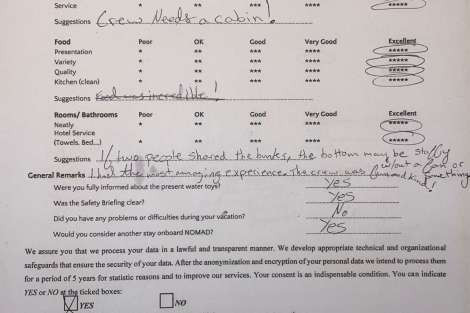 Service * ** *** **** *****
Suggestions Crew Needs a cabin!
Food Poor OK Good Very Good Excellent
Presentation * ** *** **** *****
Variety * ** *** **** *****
Quality * ** *** **** *****
Kitchen (clean) * ** *** **** *****
Suggestions Food was incredible!
Rooms/ Bathrooms Poor OK Good Very Good Excellent
Neatly * ** *** **** *****
Hotel Service
(Towels, Bed...) * ** *** **** *****
Suggestions If two people shared the bunks, the bottom may be stuffy
w/out a fan or something
General Remarks I had the most amazing experience. The crew was and kind!
Were you fully informed about the present water toys? Yes
Was the Safety Briefing clear? Yes
Did you have any problems or difficulties during your vacation? No
Would you consider another stay onboard NOMAD? Yes
We assure you that we process your data in a lawful and transparent manner. We develop appropriate technical and organizational
safeguards that ensure the security of your data. After the anonymization and encryption of your personal data we intend to process them
for a period of 5 years for statistic reasons and to improve our services. Your consent is an indispensable condition. You can indicate
YES or NO at the ticked boxes:
YES NO